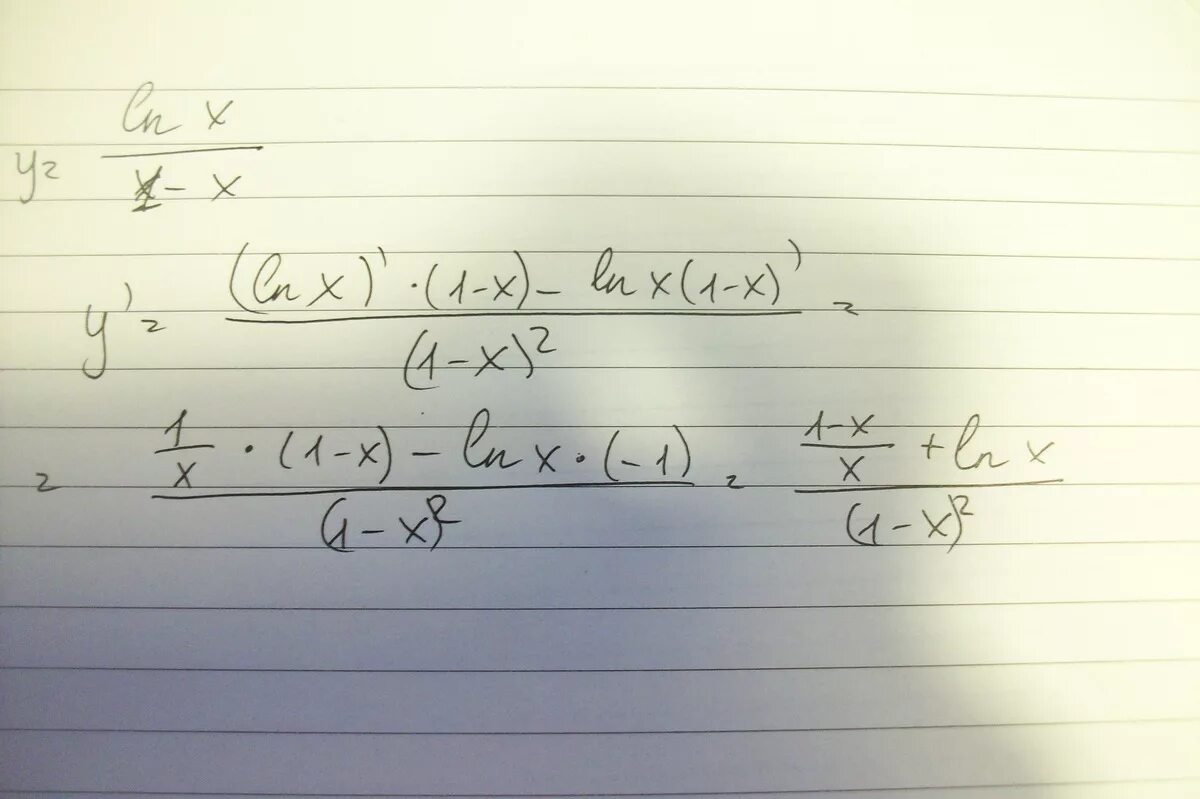 y = ln x / 1 - x
y' = (ln x)' · (1-x) - ln x (1-x)' / (1-x)² =
= 1/x · (1-x) - ln x · (-1) / (1-x)² = 1-x/x + ln x / (1-x)²